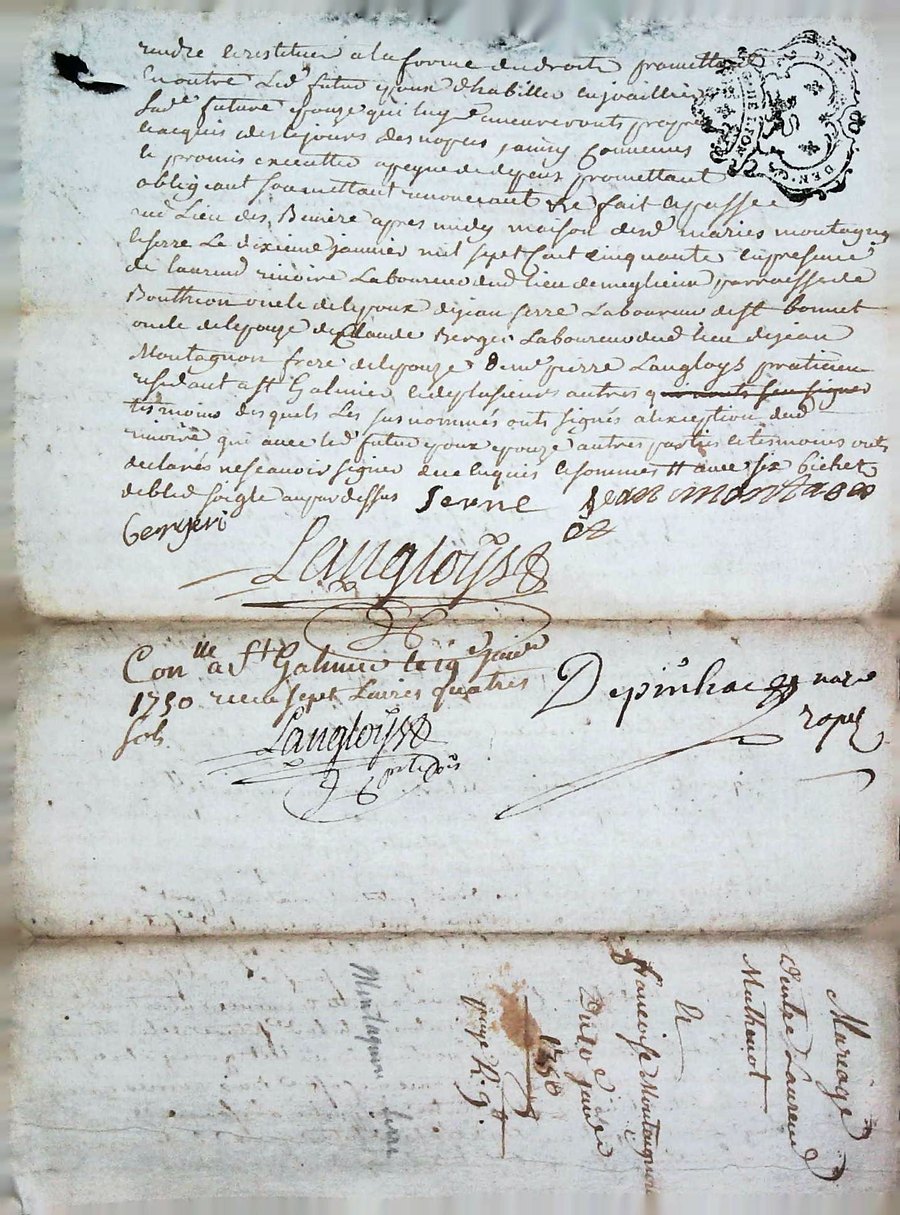 rendre et restituer a la forme du droit promettant
en outre led futur epoux d'habiller enjoailler
sad future epouze qui luy demeureronts propre
et acquis des le jour des nopces, ainsy convenus
le promis executter a peyne de depens promettant
obligeant soumettant renonceant &c fait et passé
aud Lieu des maison desd mariés montagnon
et serre Le dixieme janvier mil sept sent cinquante en presence
de laurend rivoire Laboureur dud lieu de meglieu parroisse de
Bouthion oncle de lepoux de jean serre Laboureur de st bonnet
oncle de lepouze de Claude Berger Laboureur dud lieu de jean
Montagnon frere de lepouze & de me pierre Langloys praticien
residant a st Galmier et de plusieurs autres
tesmoins desquels Les sus nommés onts signés a lexception dud
rivoire qui avec led futur epoux epouze autres parties et tesmoins onts
declarés ne scavoir signer de ce enquis et sommés ## avec six bichets
de bled soigle aupardessus Serre Jean montagnon
berger
Langloys
Conlle a St Galmier le 19e janvier
1750 receu sept Livres quatres
sols
Langloys
Depinhac nore
royal
Mareage
d'entre Laurend
Mathevot
Et
francoise Montaignon
Du 10 janvier
1750
Montagnon serre